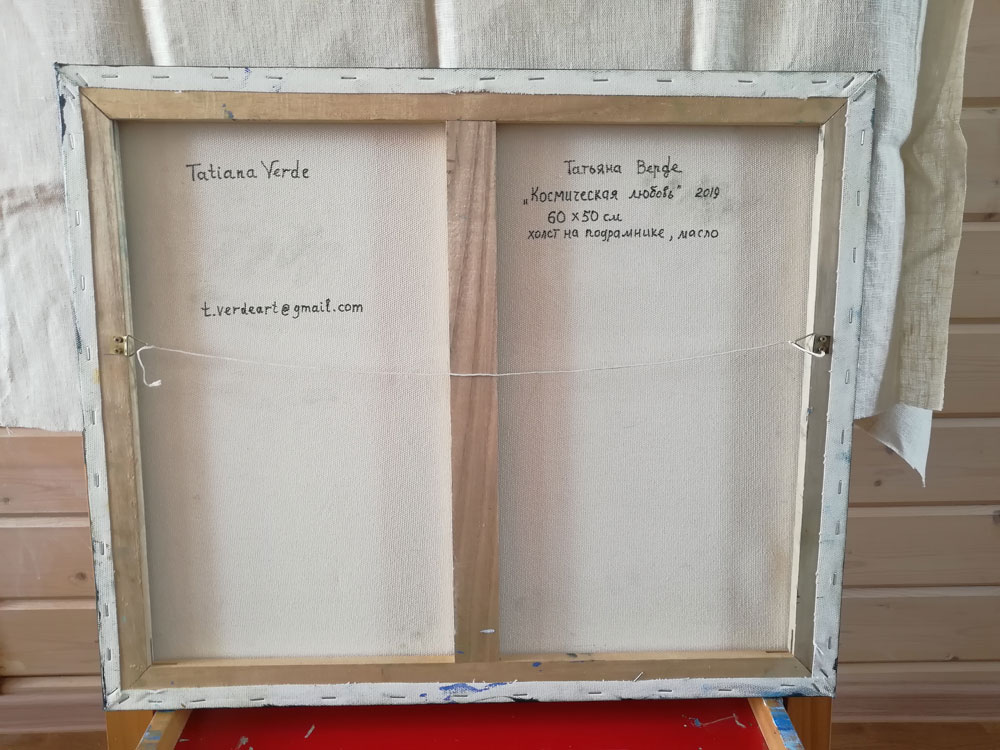 Tatiana Verde
t.verdeart@gmail.com
Татьяна Верде
„Космическая любовь" 2019
60 x 50 см
холст на подрамнике, масло